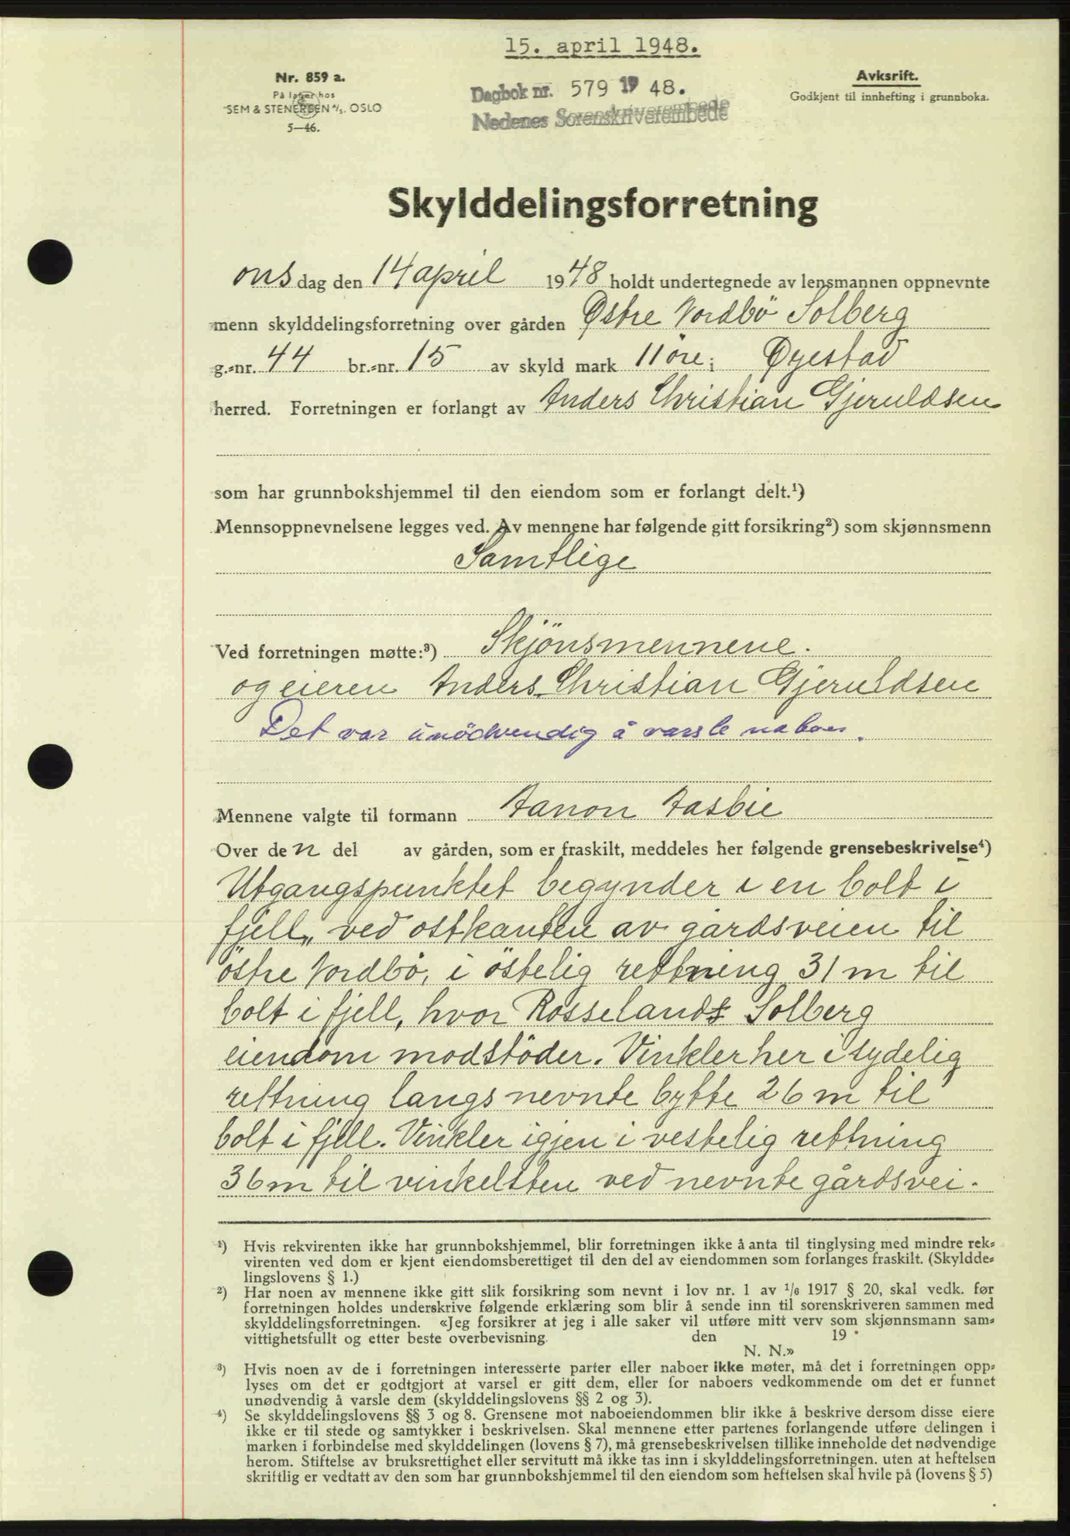 15. april 1948.
Nr. 859 a.
På lager hos
SEM & STENERSEN A/S. OSLO
5—46.
Dagbok nr. 579 19 48.
Nedenes Sorenskriverembede
Avskrift.
Godkjent til innhefting i grunnboka.
Skylddelingsforretning
onsdag den 14 april 1948 holdt undertegnede av lensmannen oppnevnte
menn skylddelingsforretning over gården Østre Nordbö Solberg
g.-nr. 44 br.-nr. 15 av skyld mark 11 öre i Øyestad
herred. Forretningen er forlangt av Anders Christian Gjeruldsen
som har grunnbokshjemmel til den eiendom som er forlangt delt.¹)
Mennsoppnevnelsene legges ved. Av mennene har følgende gitt forsikring²) som skjønnsmenn
Samtlige
Ved forretningen møtte:³) Skjönsmennene.
og eieren Anders Christian Gjeruldsen
Det var unödvendig å varsle naboer.
Mennene valgte til formann Aanon Aasbie
Over den del av gården, som er fraskilt, meddeles her følgende grensebeskrivelse⁴)
Utgangspunktet begynder i en bolt i
fjell, ved ostkanten av gårdsveien til
östre Nordbö, i östelig rettning 31 m til
bolt i fjell, hvor Rosselands Solberg
eiendom modstöder. Vinkler her i sydelig
rettning langs nevnte bytte 26 m til
bolt i fjell. Vinkler igjen i vestelig rettning
36 m til vinkelsten ved nevnte gårdsvei.
¹) Hvis rekvirenten ikke har grunnbokshjemmel, blir forretningen ikke å anta til tinglysing med mindre rek-
virenten ved dom er kjent eiendomsberettiget til den del av eiendommen som forlanges fraskilt. (Skyldde-
lingslovens § 1.)
²) Har noen av mennene ikke gitt slik forsikring som nevnt i lov nr. 1 av 1/6 1917 § 20, skal vedk. før
forretningen holdes underskrive følgende erklæring som blir å sende inn til sorenskriveren sammen med
skylddelingsforretningen. «Jeg forsikrer at jeg i alle saker vil utføre mitt verv som skjønnsmann sam-
vittighetsfullt og etter beste overbevisning. den 19
N. N.»
³) Hvis noen av de i forretningen interesserte parter eller naboer ikke møter, må det i forretningen opp-
lyses om det er godtgjort at varsel er gitt dem, eller for naboers vedkommende om det er funnet
unødvendig å varsle dem (skylddelingslovens §§ 2 og 3).
⁴) Se skylddelingslovens §§ 3 og 8. Grensene mot naboeiendommen blir ikke å beskrive dersom disse eiere
ikke er til stede og samtykker i beskrivelsen. Skal mennene etter partenes forlangende utføre delingen i
marken i forbindelse med skylddelingen (lovens § 7), må grensebeskrivelsen tillike inneholde det nødvendige
herom. Stiftelse av bruksrettighet eller servitutt må ikke tas inn i skylddelingsforretningen, uten at heftelsen
skriftlig er vedtatt av den som har grunnbokshjemmel til den eiendom som heftelsen skal hvile på (lovens § 5)